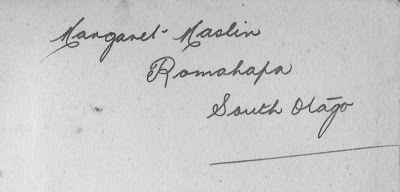 Margaret Maslin
Romahapa
South Otāgo